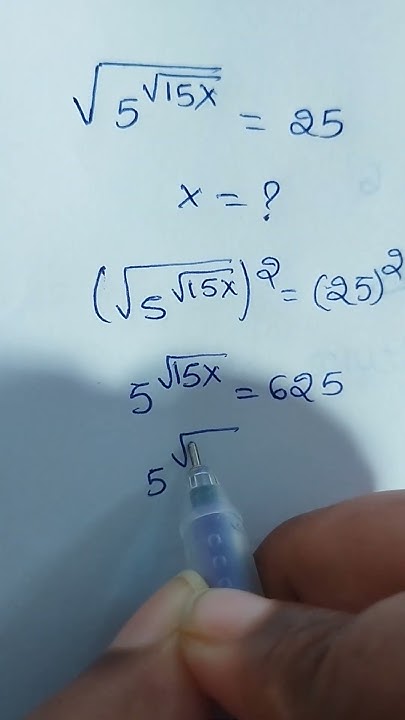 √(5^√(15x)) = 25
x = ?
(√(5^√(15x)))² = (25)²
5^√(15x) = 625
5^√